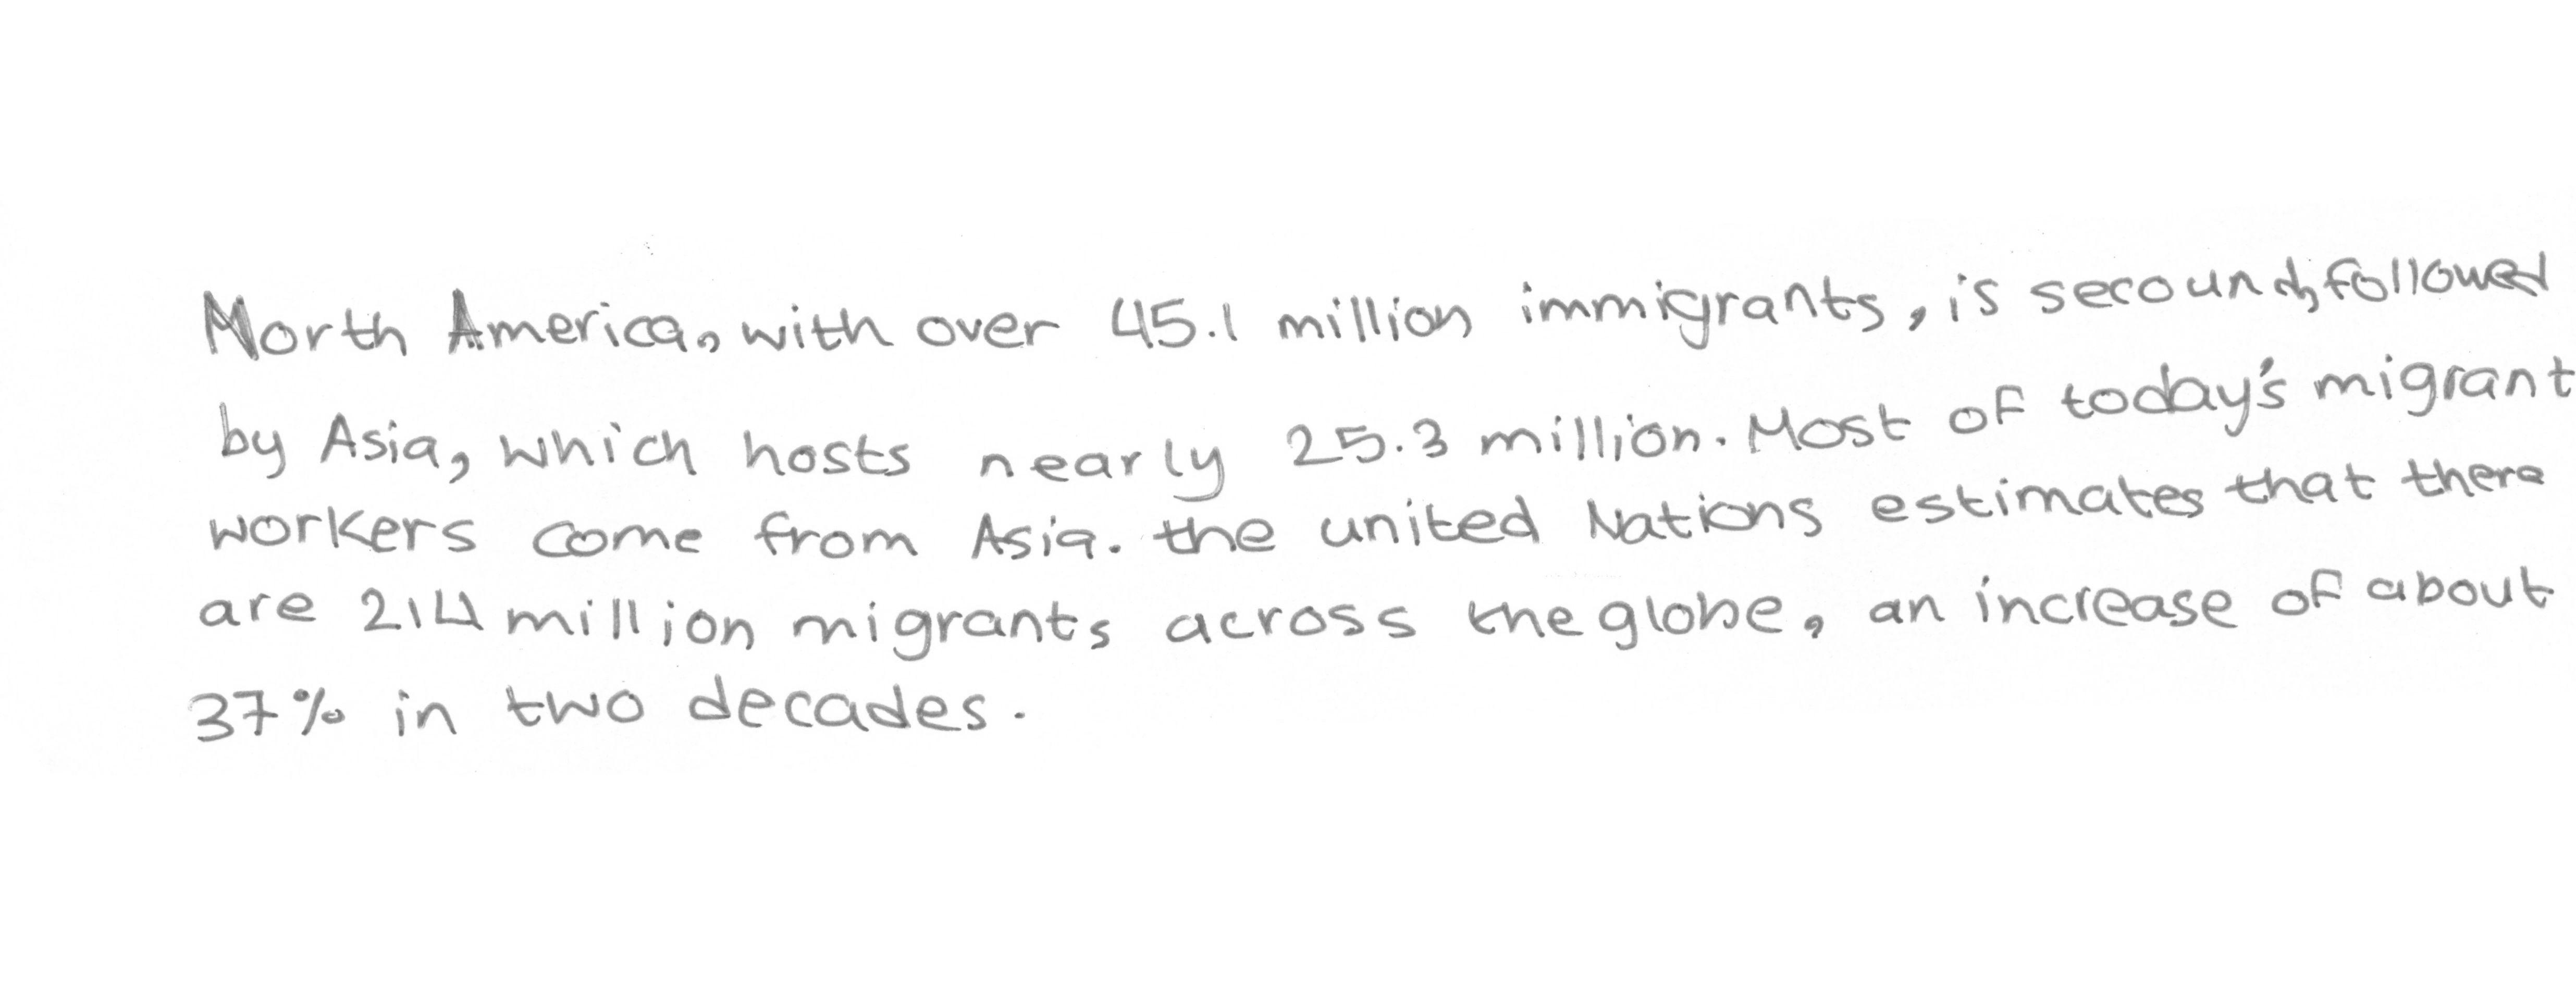 North America, with over 45.1 million immigrants, is secound, followed
by Asia, which hosts nearly 25.3 million. Most of today's migrant
workers come from Asia. the united Nations estimates that there
are 214 million migrants across the globe, an increase of about
37% in two decades.